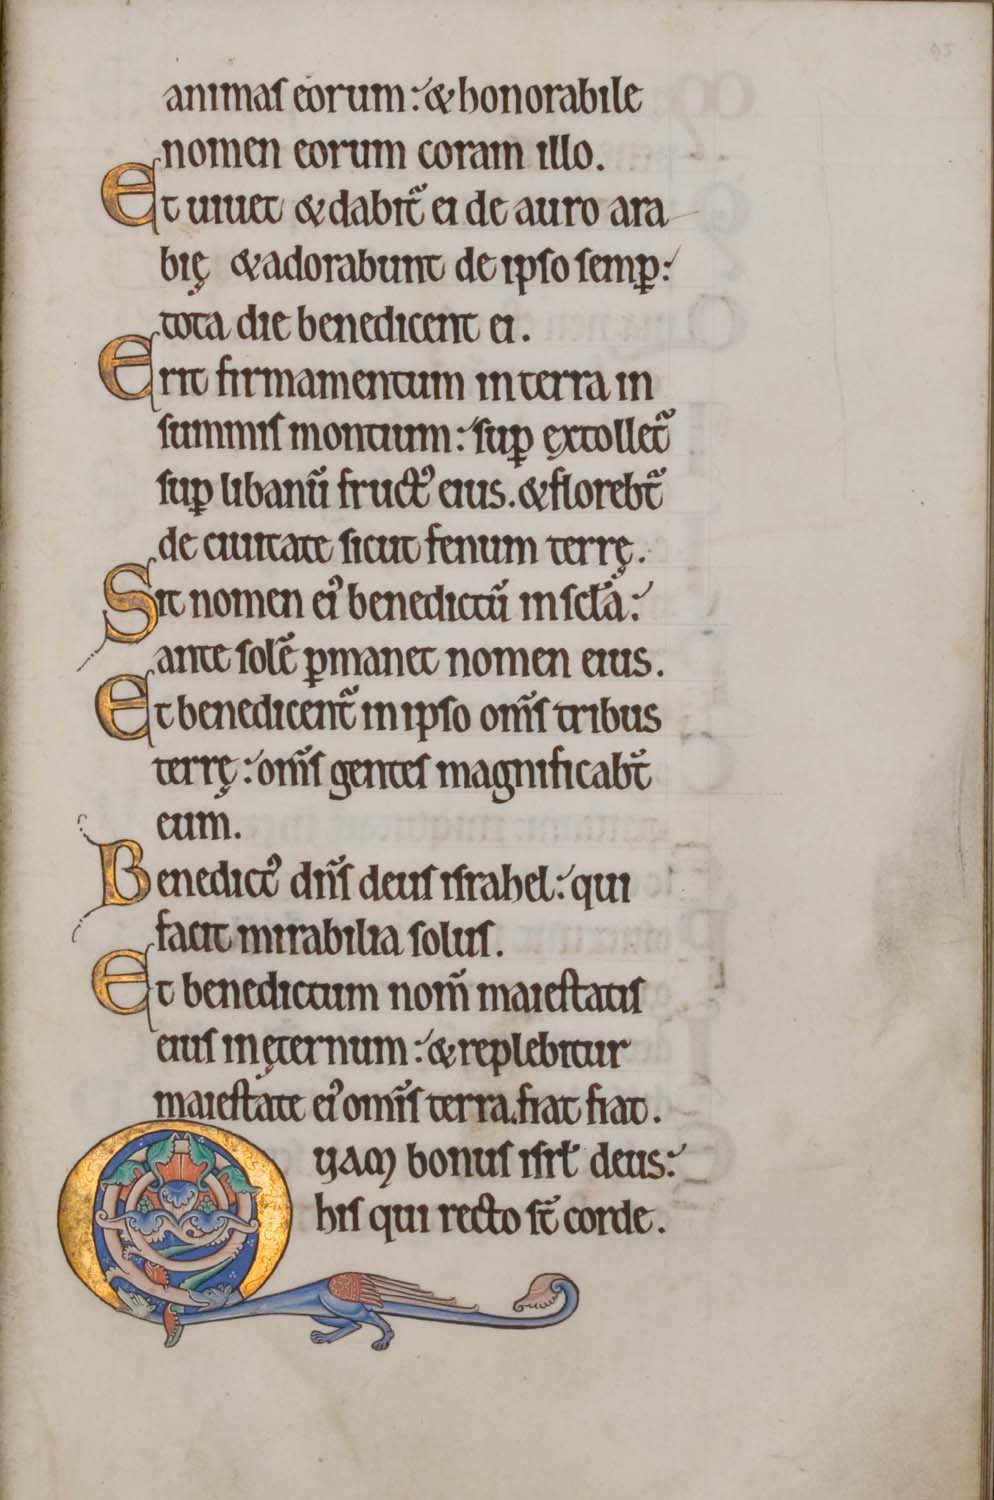 animas eorum: & honorabile
nomen eorum coram illo.
Et uiuet & dabit᷑ ei de auro ara
bię & adorabunt de ipso semp̲:
tota die benedicent ei.
Erit firmamentum in terra in
summis montium: sup̲ extollet᷑
sup̲ libanū fruct᾿ eius. & florebt᷑
de ciuitate sicut fenum terrę.
Sit nomen ei᾿ benedictū in scl̄a:
ante solē p̲manet nomen eius.
Et benedicent᷑ in ipso om̄s tribus
terrę: om̄s gentes magnificabt̄
eum.
Benedict᾿ dn̄s deus israhel: qui
facit mirabilia solus.
Et benedictum nom̄ maiestatis
eius in ęternum: & replebitur
maiestate ei᾿ om̄is terra. fiat fiat.
Quam bonus isrl̄ deus:
his qui recto st̄ corde.